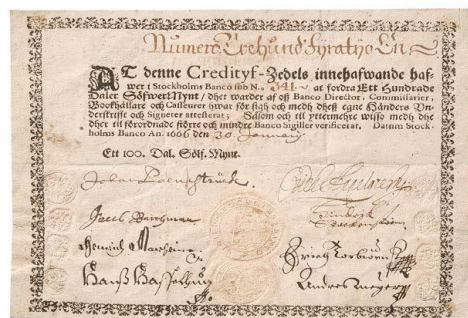 Numero Trehund: Fyratijo En
AT denne Credityf-Zedels innehafwande haf-
wer i Stockholms Banco sub N.º 341 at fordra Ett Hundrade
Daler SölfwerMynt / dhet warder af oß Banco Director, Commissarier,
Bookhållare och Casseuer hwar för sigh och medh dheß egne Händers Un-
derskrifft och Signeter attesterat; Såsom och til yttermehre wisso medh dhe
dher til förordnade större och mindre Banco Sigiller verificerat. Datum Stock-
holms Banco An. 1666 den 30. January
Ett 100. Dal. Sölf. Mynt.
Johan
Jacob
Hindrich
Hanß
Anders